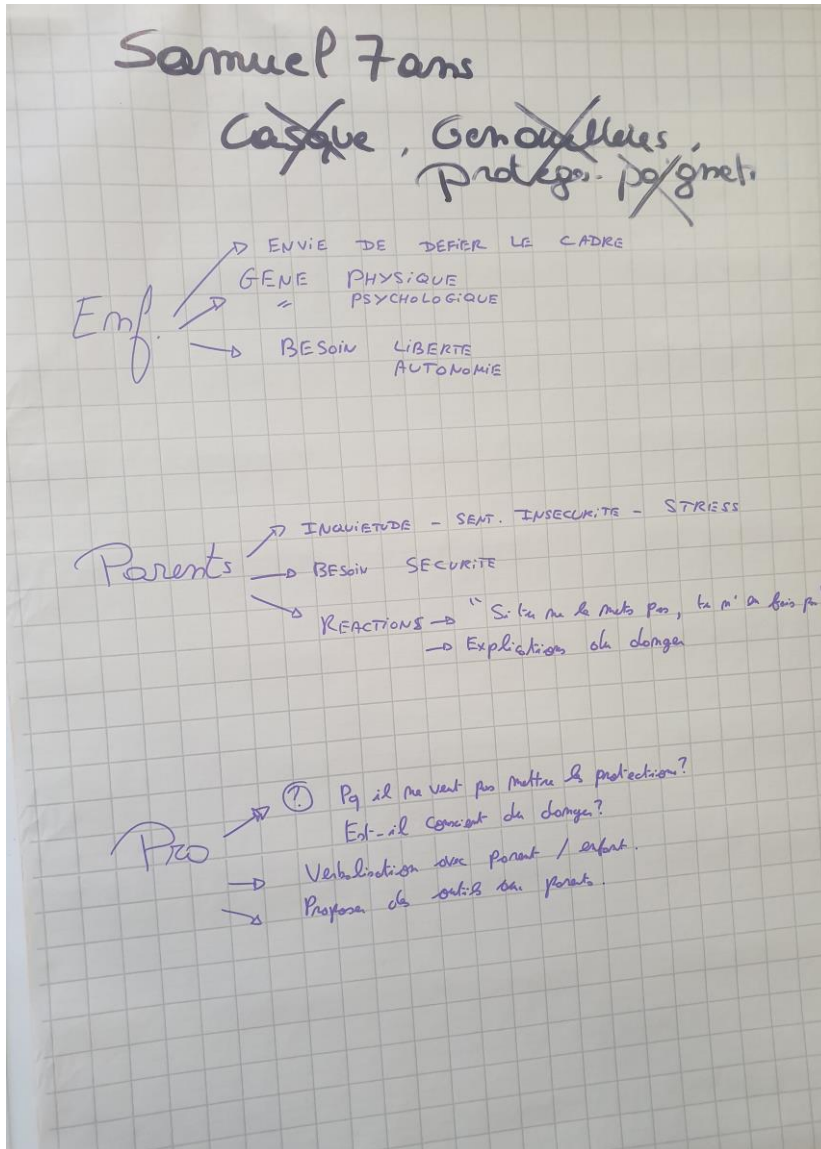 Samuel 7 ans
Casque, Genouilleres,
Protège-poignet.
ENVIE DE DEFIER LE CADRE
Enf. GENE PHYSIQUE
" PSYCHOLOGIQUE
BESOIN LIBERTE
AUTONOMIE
INQUIETUDE - SENT. INSECURITE - STRESS
Parents BESOIN SECURITE
REACTIONS → "Si tu ne le mets pas, tu m'en fais
→ Explications du danger
? Pq il ne veut pas mettre les protections?
Est-il conscient du danger?
Pro Verbalisation avec parent / enfant.
Proposer des outils aux parents.